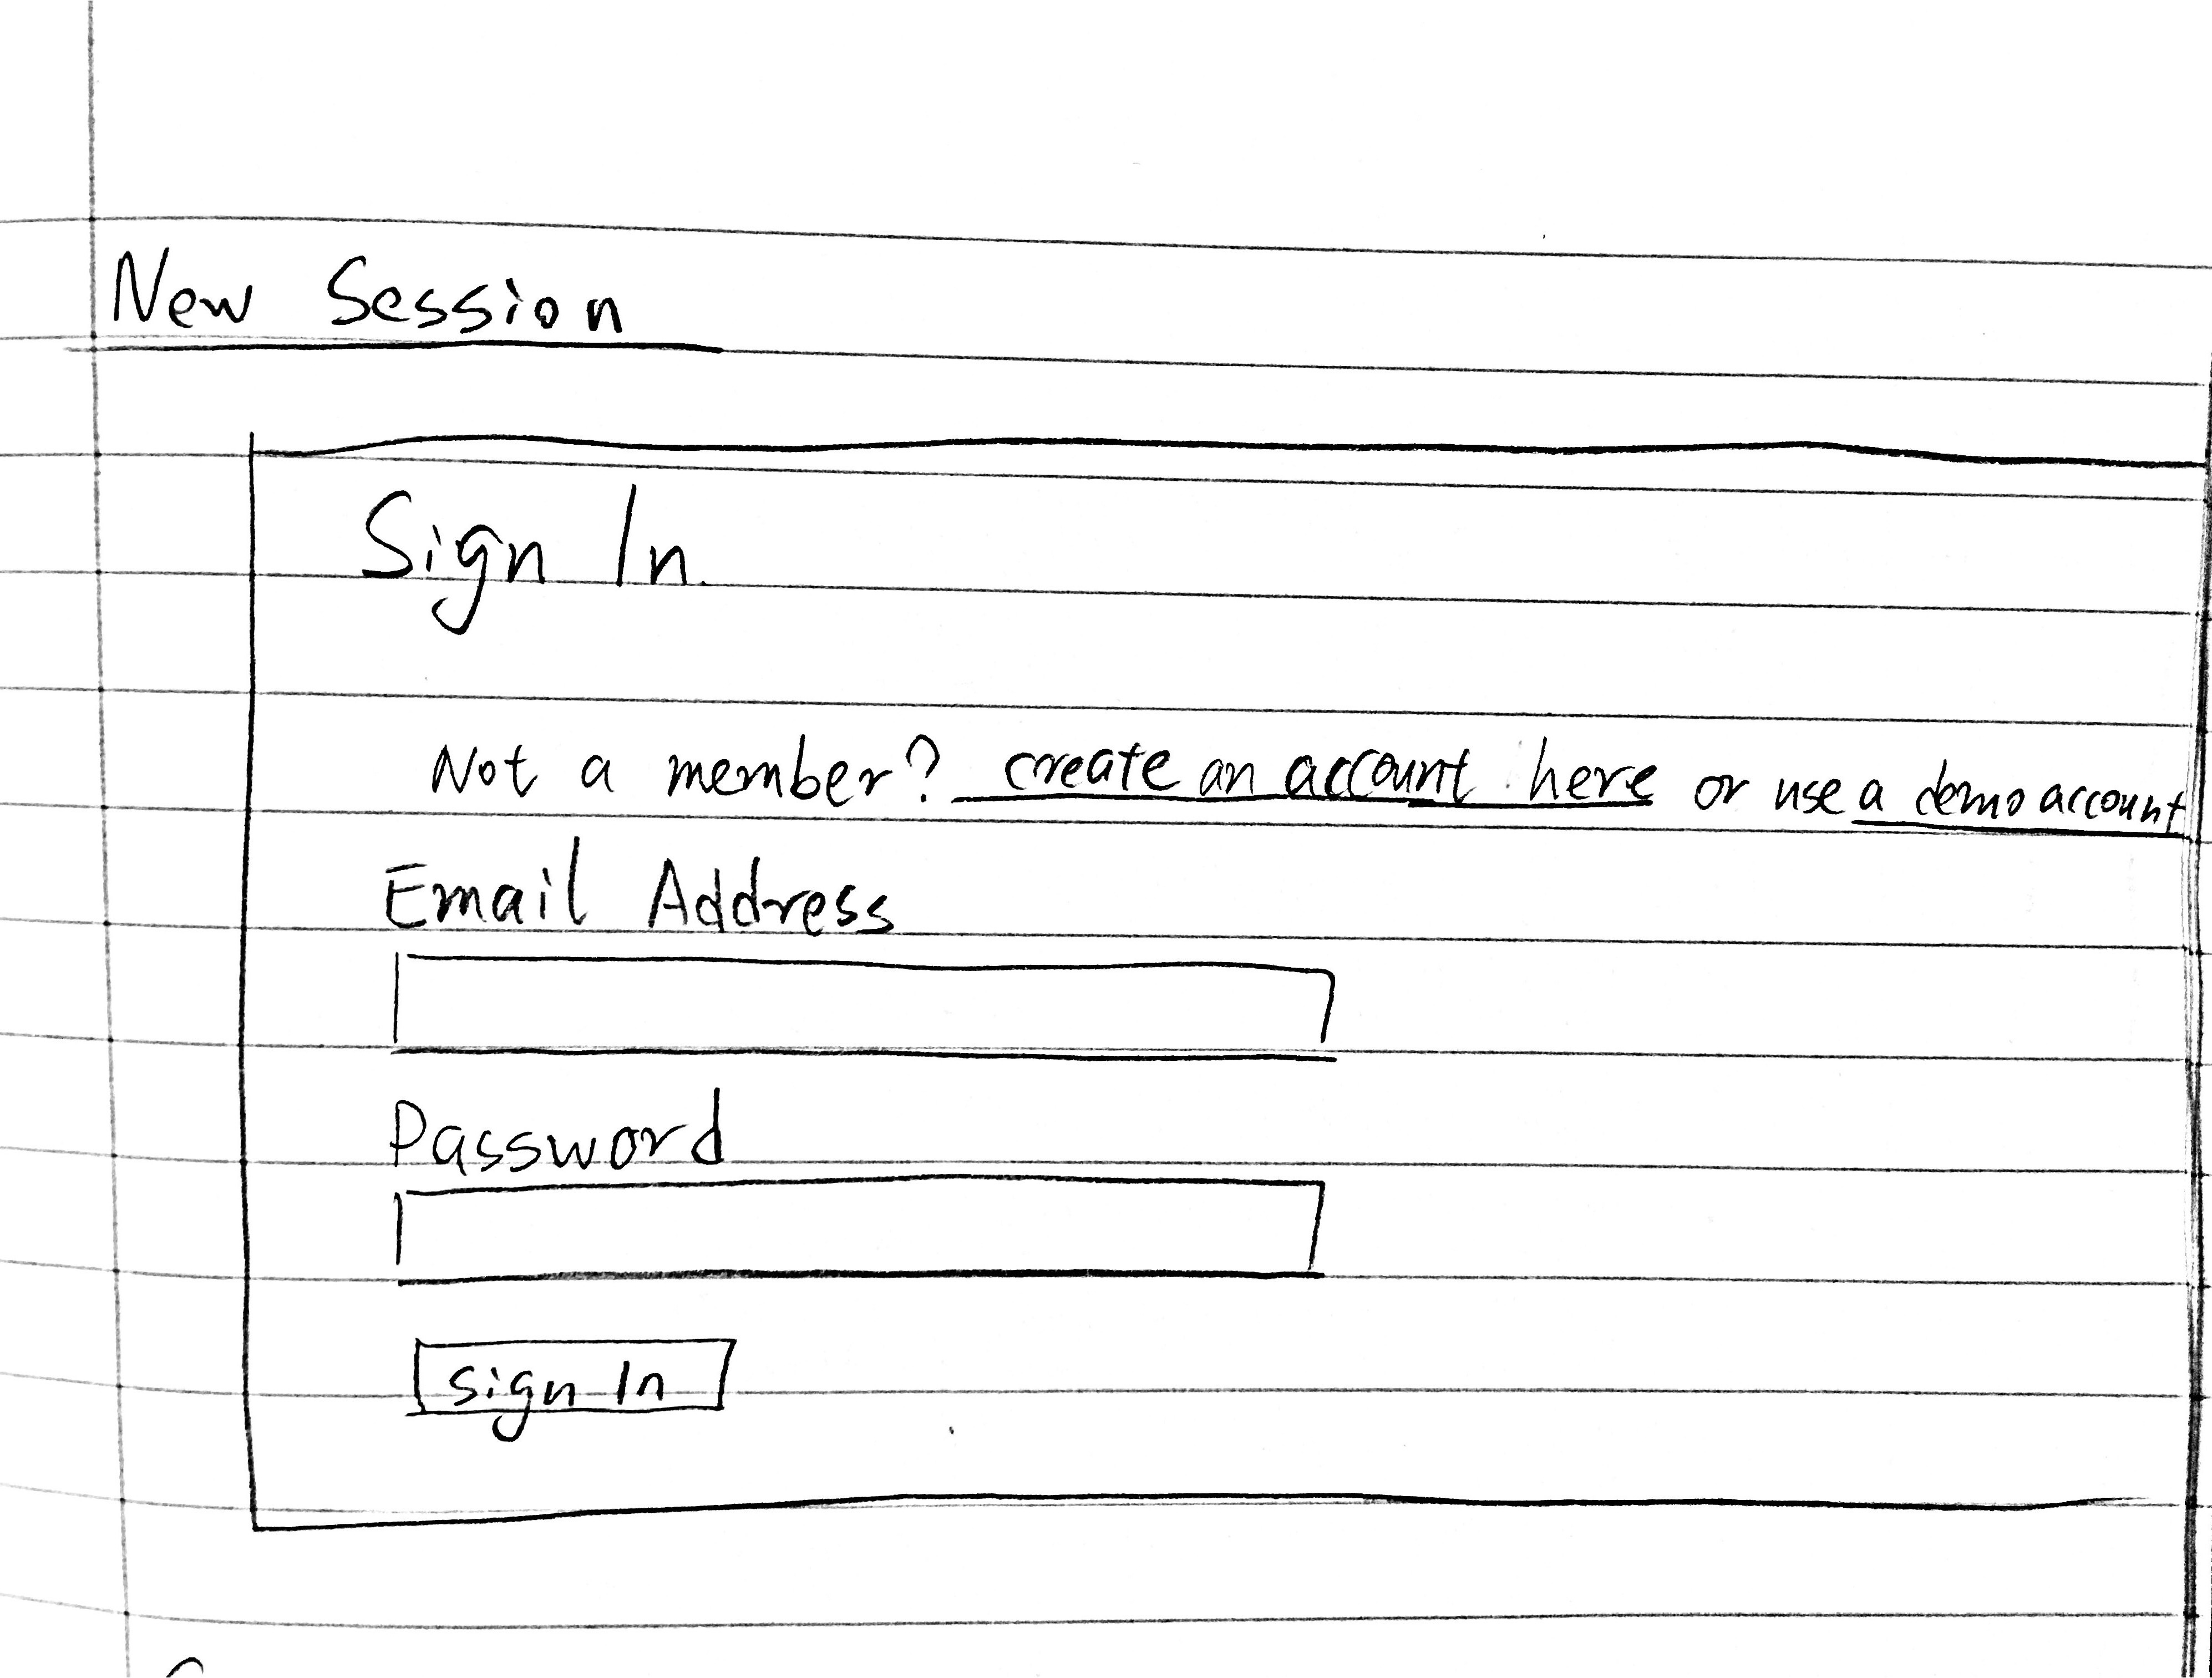 New Session
Sign In
Not a member? create an account here or use a demo account
Email Address
Password
sign In